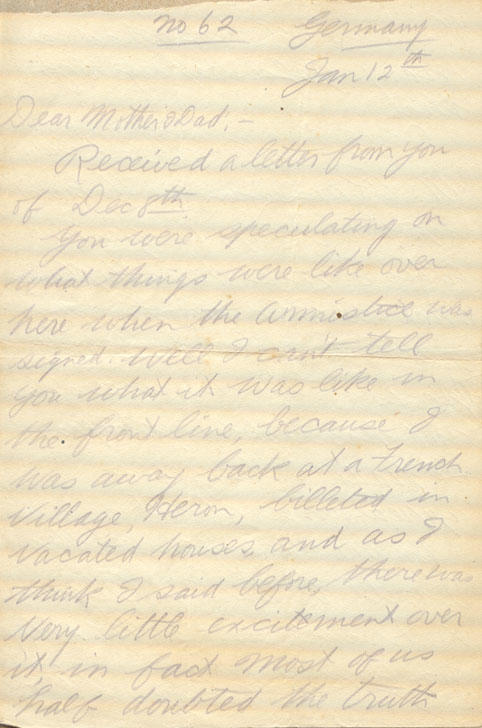 no 62 Germany
Jan 12th
Dear Mother & Dad,-
Received a letter from you
of Dec 8th
You were speculating on
what things were like over
here when the armistice was
signed. Well I can't tell
you what it was like in
the front line, because I
was away back at a French
Village, Heron, billeted in
vacated houses, and as I
think I said before, there was
very little excitement over
it, in fact most of us
half doubted the truth